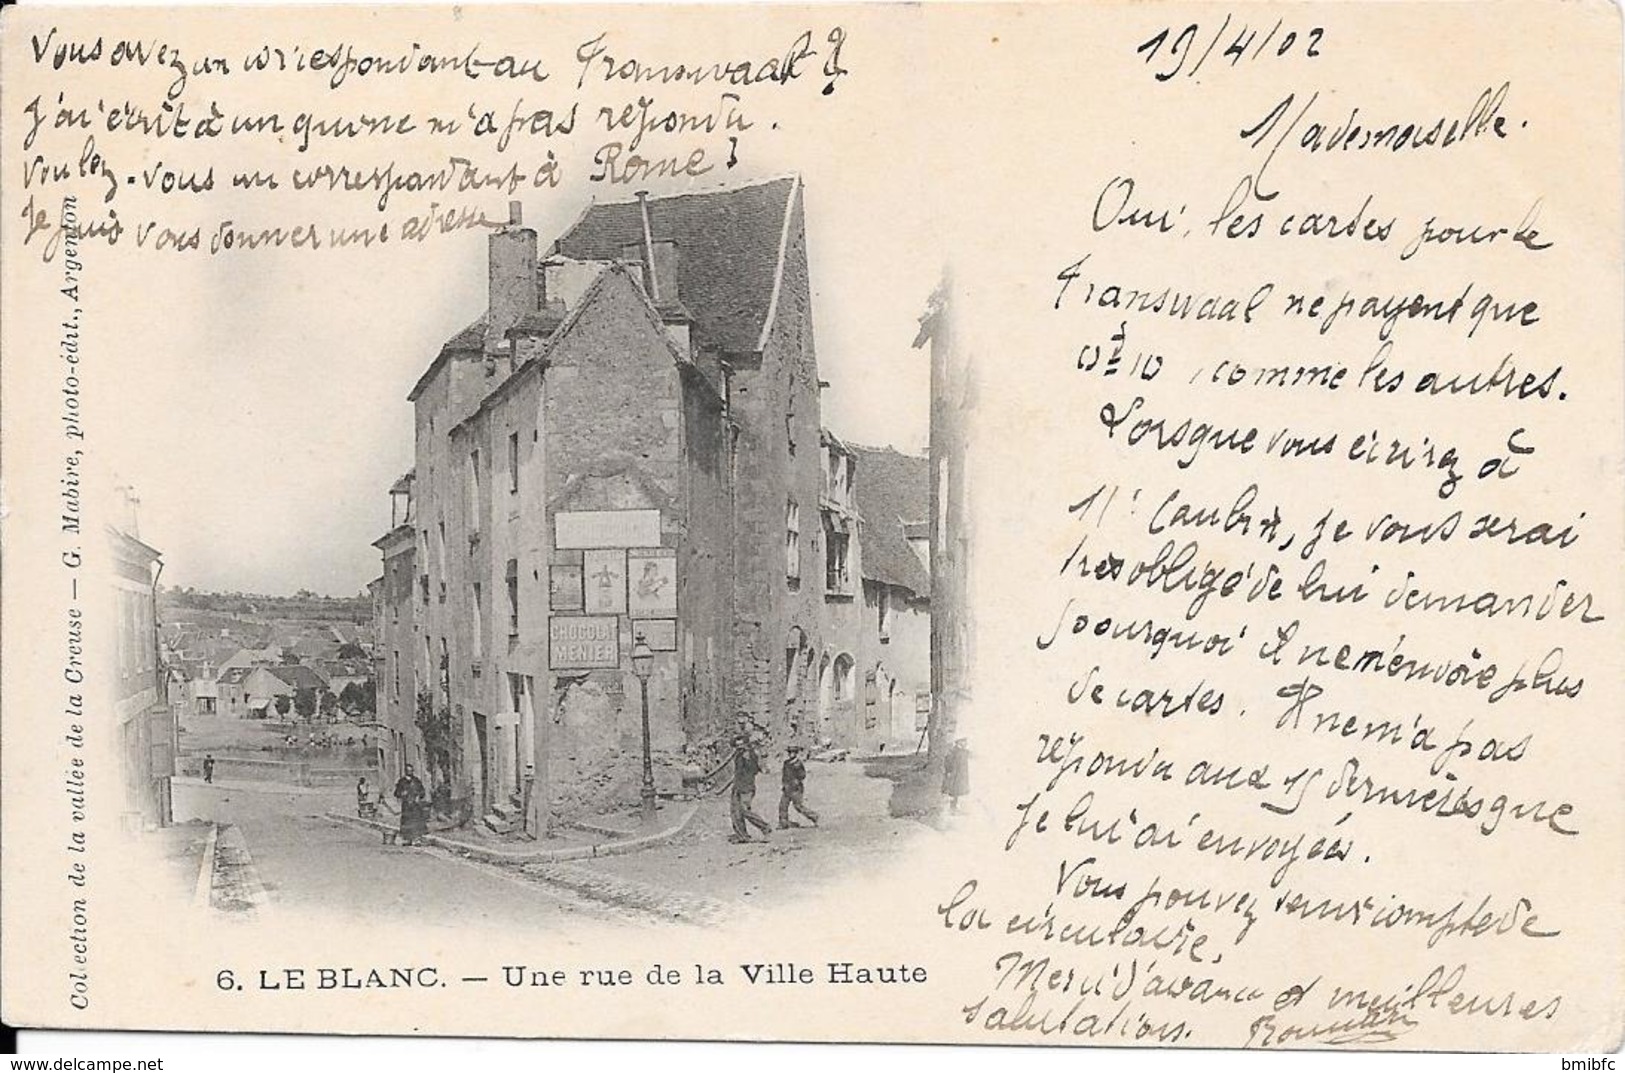 Vous avez un correspondant au Transwaal ?
J'ai écrit à un qui ne m'a pas répondu.
Voulez-vous un correspondant à Rome ?
Je puis vous donner une adresse
19/4/02
Mademoiselle.
Oui, les cartes pour le
Transwaal ne payent que
0,10, comme les autres.
Lorsque vous écrirez à
Mr Caubin, je vous serai
très obligé de lui demander
pourquoi il ne m'envoie plus
de cartes. Il ne m'a pas
répondu aux 15 dernières que
je lui ai envoyées.
Vous pouvez tenir compte de
la circulaire,
Merci d'avance et meilleures
salutations.
CHOCOLAT
MENIER
Collection de la vallée de la Creuse — G. Mabire, photo-édit., Argenton
6. LE BLANC. — Une rue de la Ville Haute
bmibfc